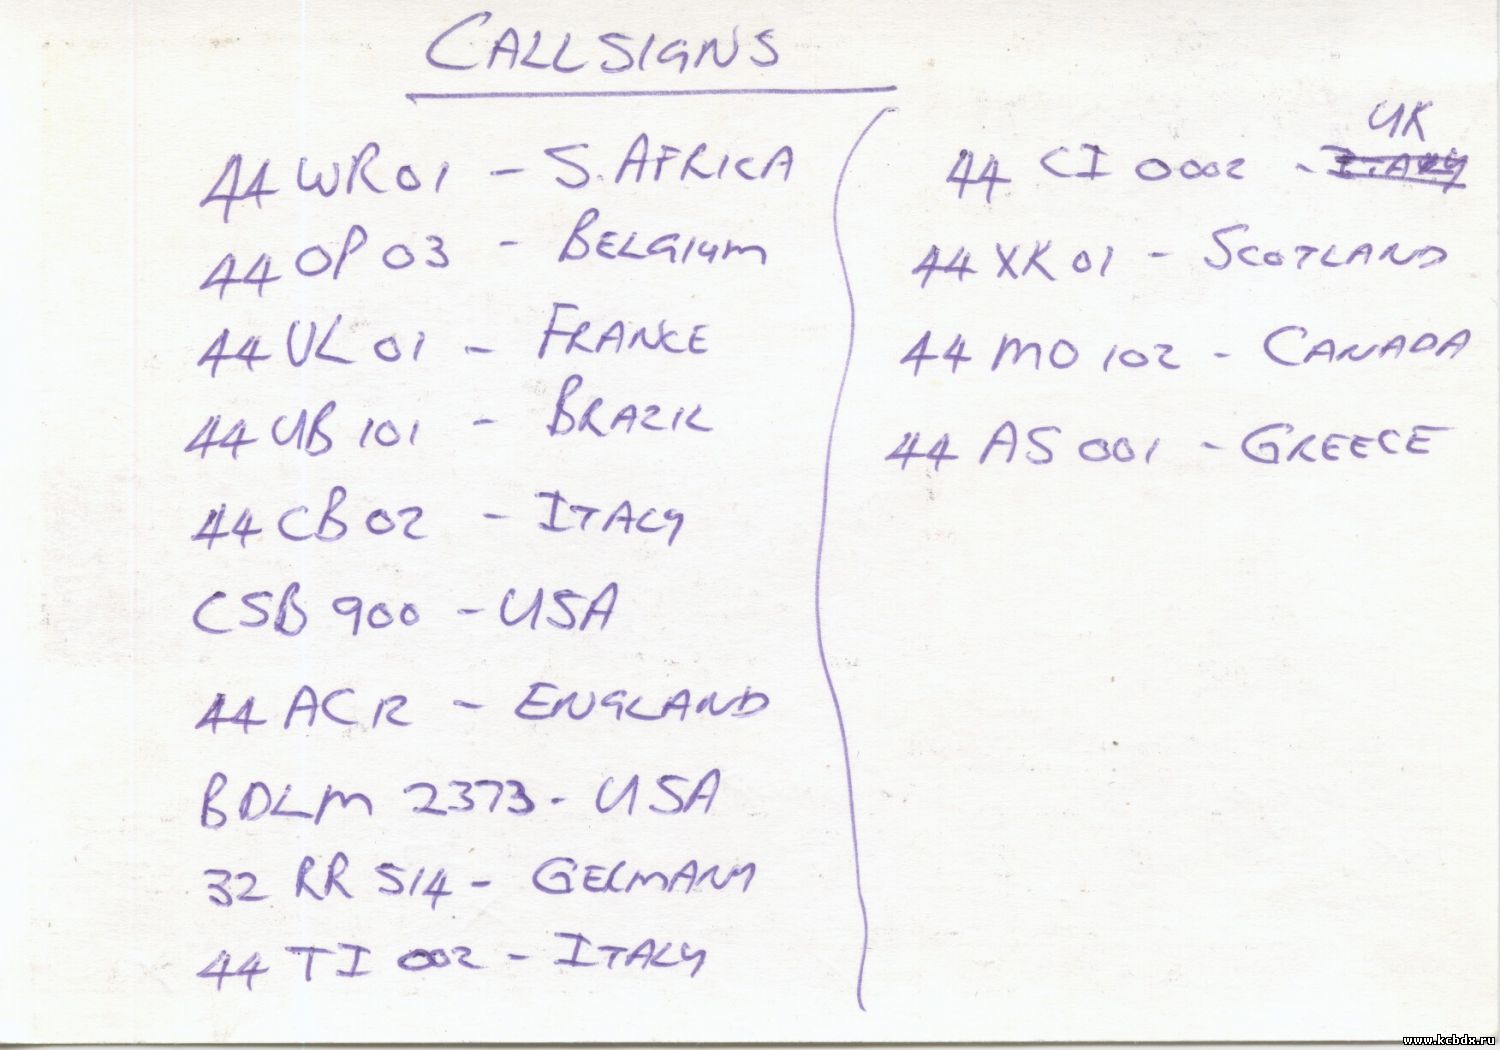 CALLSIGNS
44 WR 01 - S. AFRICA
44 OP 03 - BELGIUM
44 UL 01 - FRANCE
44 UB 101 - BRAZIL
44 CB 02 - ITALY
CSB 900 - USA
44 ACR - ENGLAND
BDLM 2373 - USA
32 RR 514 - GERMANY
44 TI 002 - ITALY
UK
44 CI 0002 - ITALY
44 XK 01 - SCOTLAND
44 MO 102 - CANADA
44 AS 001 - GREECE
www.kcbdx.ru